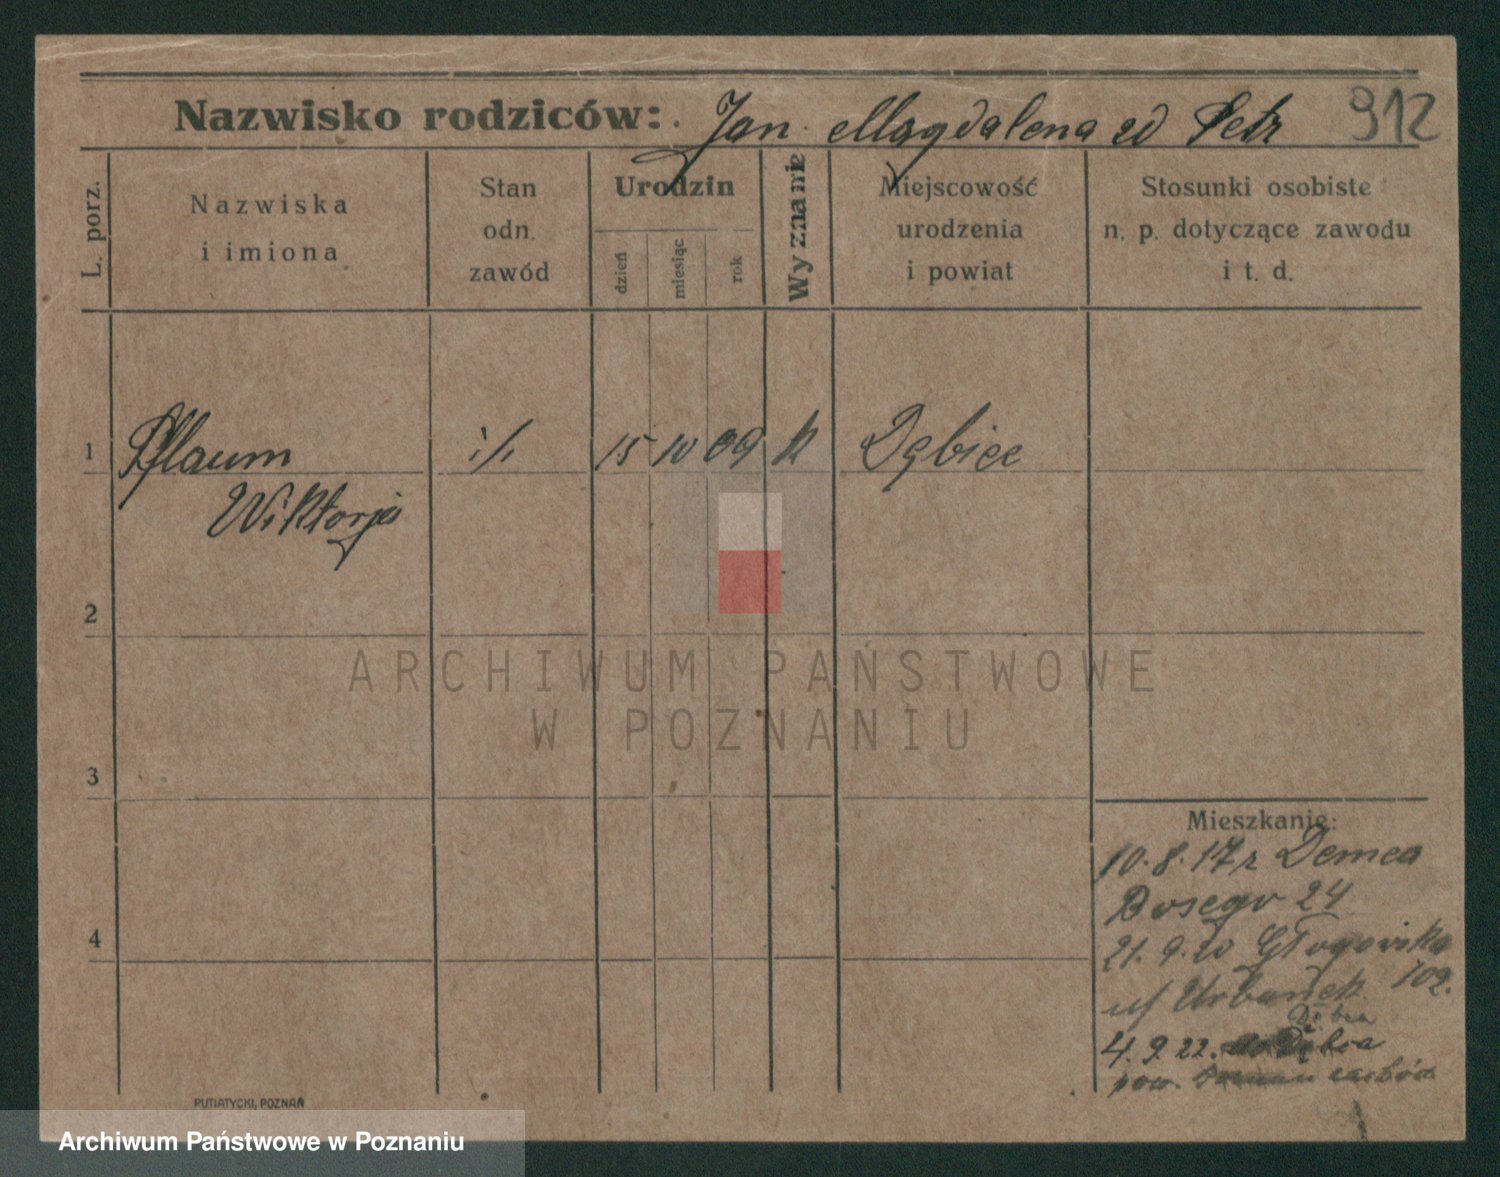 Nazwisko rodziców: Jan Magdalena zd Petr 912
L. porz.
Nazwiska
i imiona
Stan
odn.
zawód
Urodzin
dzień
miesiąc
rok
Wyznanie
Miejscowość
urodzenia
i powiat
Stosunki osobiste
n. p. dotyczące zawodu
i t. d.
1 Pflaum 15 10 09 k Dębiec
Wiktorja
2
ARCHIWUM PAŃSTWOWE
W POZNANIU
3
Mieszkanie:
10. 8. 17 r
24
4
21. 9. 20 Głogowska
Urbanek 102.
4. 9. 22. Dębca
pow.
PUTIATYCKI, POZNAŃ
Archiwum Państwowe w Poznaniu